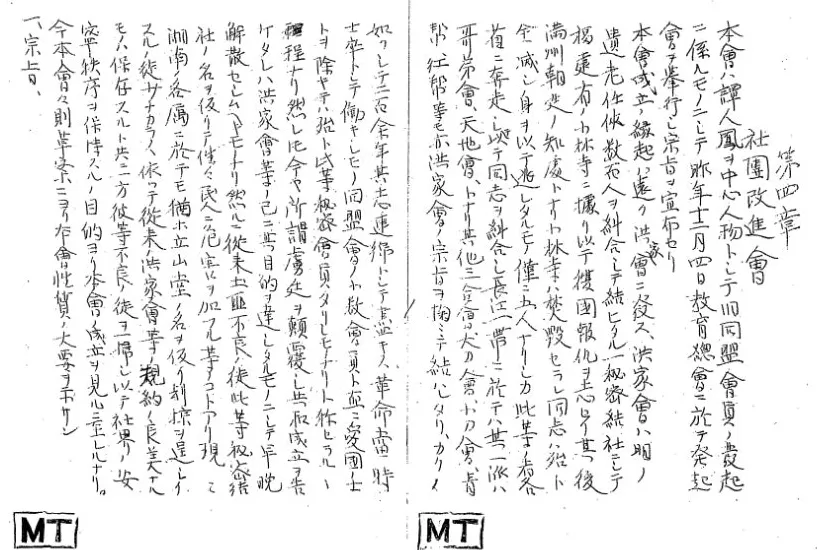 第四章
社團改進會
本會ハ譚人鳳ヲ中心人物トシテ旧同盟會員ノ發起
ニ係ルモノニシテ昨年十二月四日教育總會ニ於テ發起
會ヲ挙行シ宗旨ヲ宣布セリ
本會成立ノ縁起ハ遠ク洪家會ニ発ス、洪家會ハ明ノ
遺老任侠数百人ヲ糾合シテ結ビタル一秘密結社ニシテ
福建省ノ少林寺ニ據リ以テ復国報仇ヲ志セシ其後
満州朝廷ノ知處トナリ少林寺ハ焚毀セラレ同志ハ殆ト
全滅シ身ヲ以テ逃レタルモノ僅ニ五人ナリシカ此等ノ者各
省ニ奔走シ以テ同志ヲ糾合シ長江一帯ニ於テハ其一派ハ
哥弟會、天地會、トナリ其他三合會大刀會、小刀會、青
帮、紅帮等モ亦洪家會ノ宗旨ヲ掬ミテ結ハレタリ、カクノ
如クシテ二百余年其志連綿トシテ盡キス、革命當時
士卒トシテ働キシモノ同盟會ノ小数會員ト並ニ愛国ノ士
トヲ除ヤテハ殆ト此等秘密會員タリシモノナリト称セラルヽ
程ナリ然レ圧今ヤ所謂虜廷ヲ顛覆シ共和成立ヲ告
ケタレハ洪家會等ノ已ニ其目的ヲ達シタルモノニシテ早晩
解散セシムヘキモノナリ然ルニ從来土匪不良ノ徒此等秘密結
社ノ名ヲ仮リテ往々民ニ危害ヲ加フル等ノコトアリ現ニ
湖南ノ各属ニ於テモ猶ホ立山堂ノ名ヲ仮リ剽掠ヲ逞シク
スルノ徒サナカラス、依ツテ從来洪家會等ノ規約ノ良美ナル
モノハ保存スルト共ニ一方彼等不良ノ徒ヲ一掃シ以テ社界ノ安
寧秩序ヲ保持スルノ目的ヨリ本會ノ成立ヲ見ルニ至レルナリ。
今本會々則草案ニヨリ本會性質ノ大要ヲ示サン
一、宗旨、
MT
MT